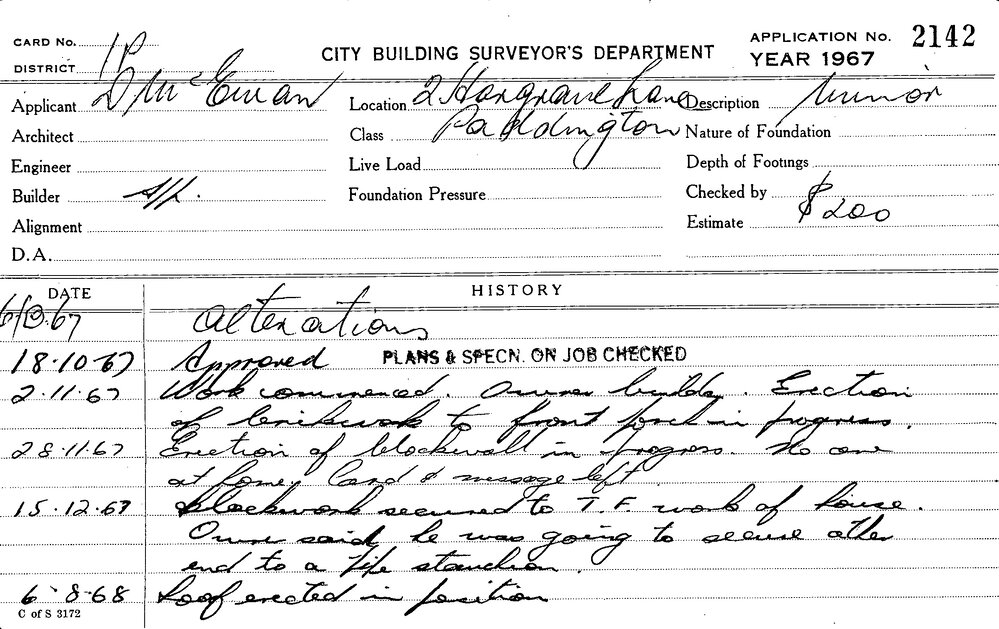 CARD No.
DISTRICT 1P
CITY BUILDING SURVEYOR'S DEPARTMENT
APPLICATION No. 2142
YEAR 1967
Applicant D McEwan
Location 2 Hargrave Lane
Paddington
Description Minor
Architect
Class
Nature of Foundation
Engineer
Live Load
Depth of Footings
Builder
Foundation Pressure
Checked by
Alignment
Estimate $200
D.A.
DATE
HISTORY
6/10.67 Alterations
18.10.67 Approved PLANS & SPECN. ON JOB CHECKED
2.11.67 Work commenced. Owner builder. Erection
of brickwork to front porch in progress.
28.11.67 Erection of blockwall in progress. No one
at home, Card & message left
15.12.67 Blockwork secured to T.F. work of house.
Owner said he was going to secure other
end to a pipe stanchion.
6.8.68 Roof erected in position
C of S 3172